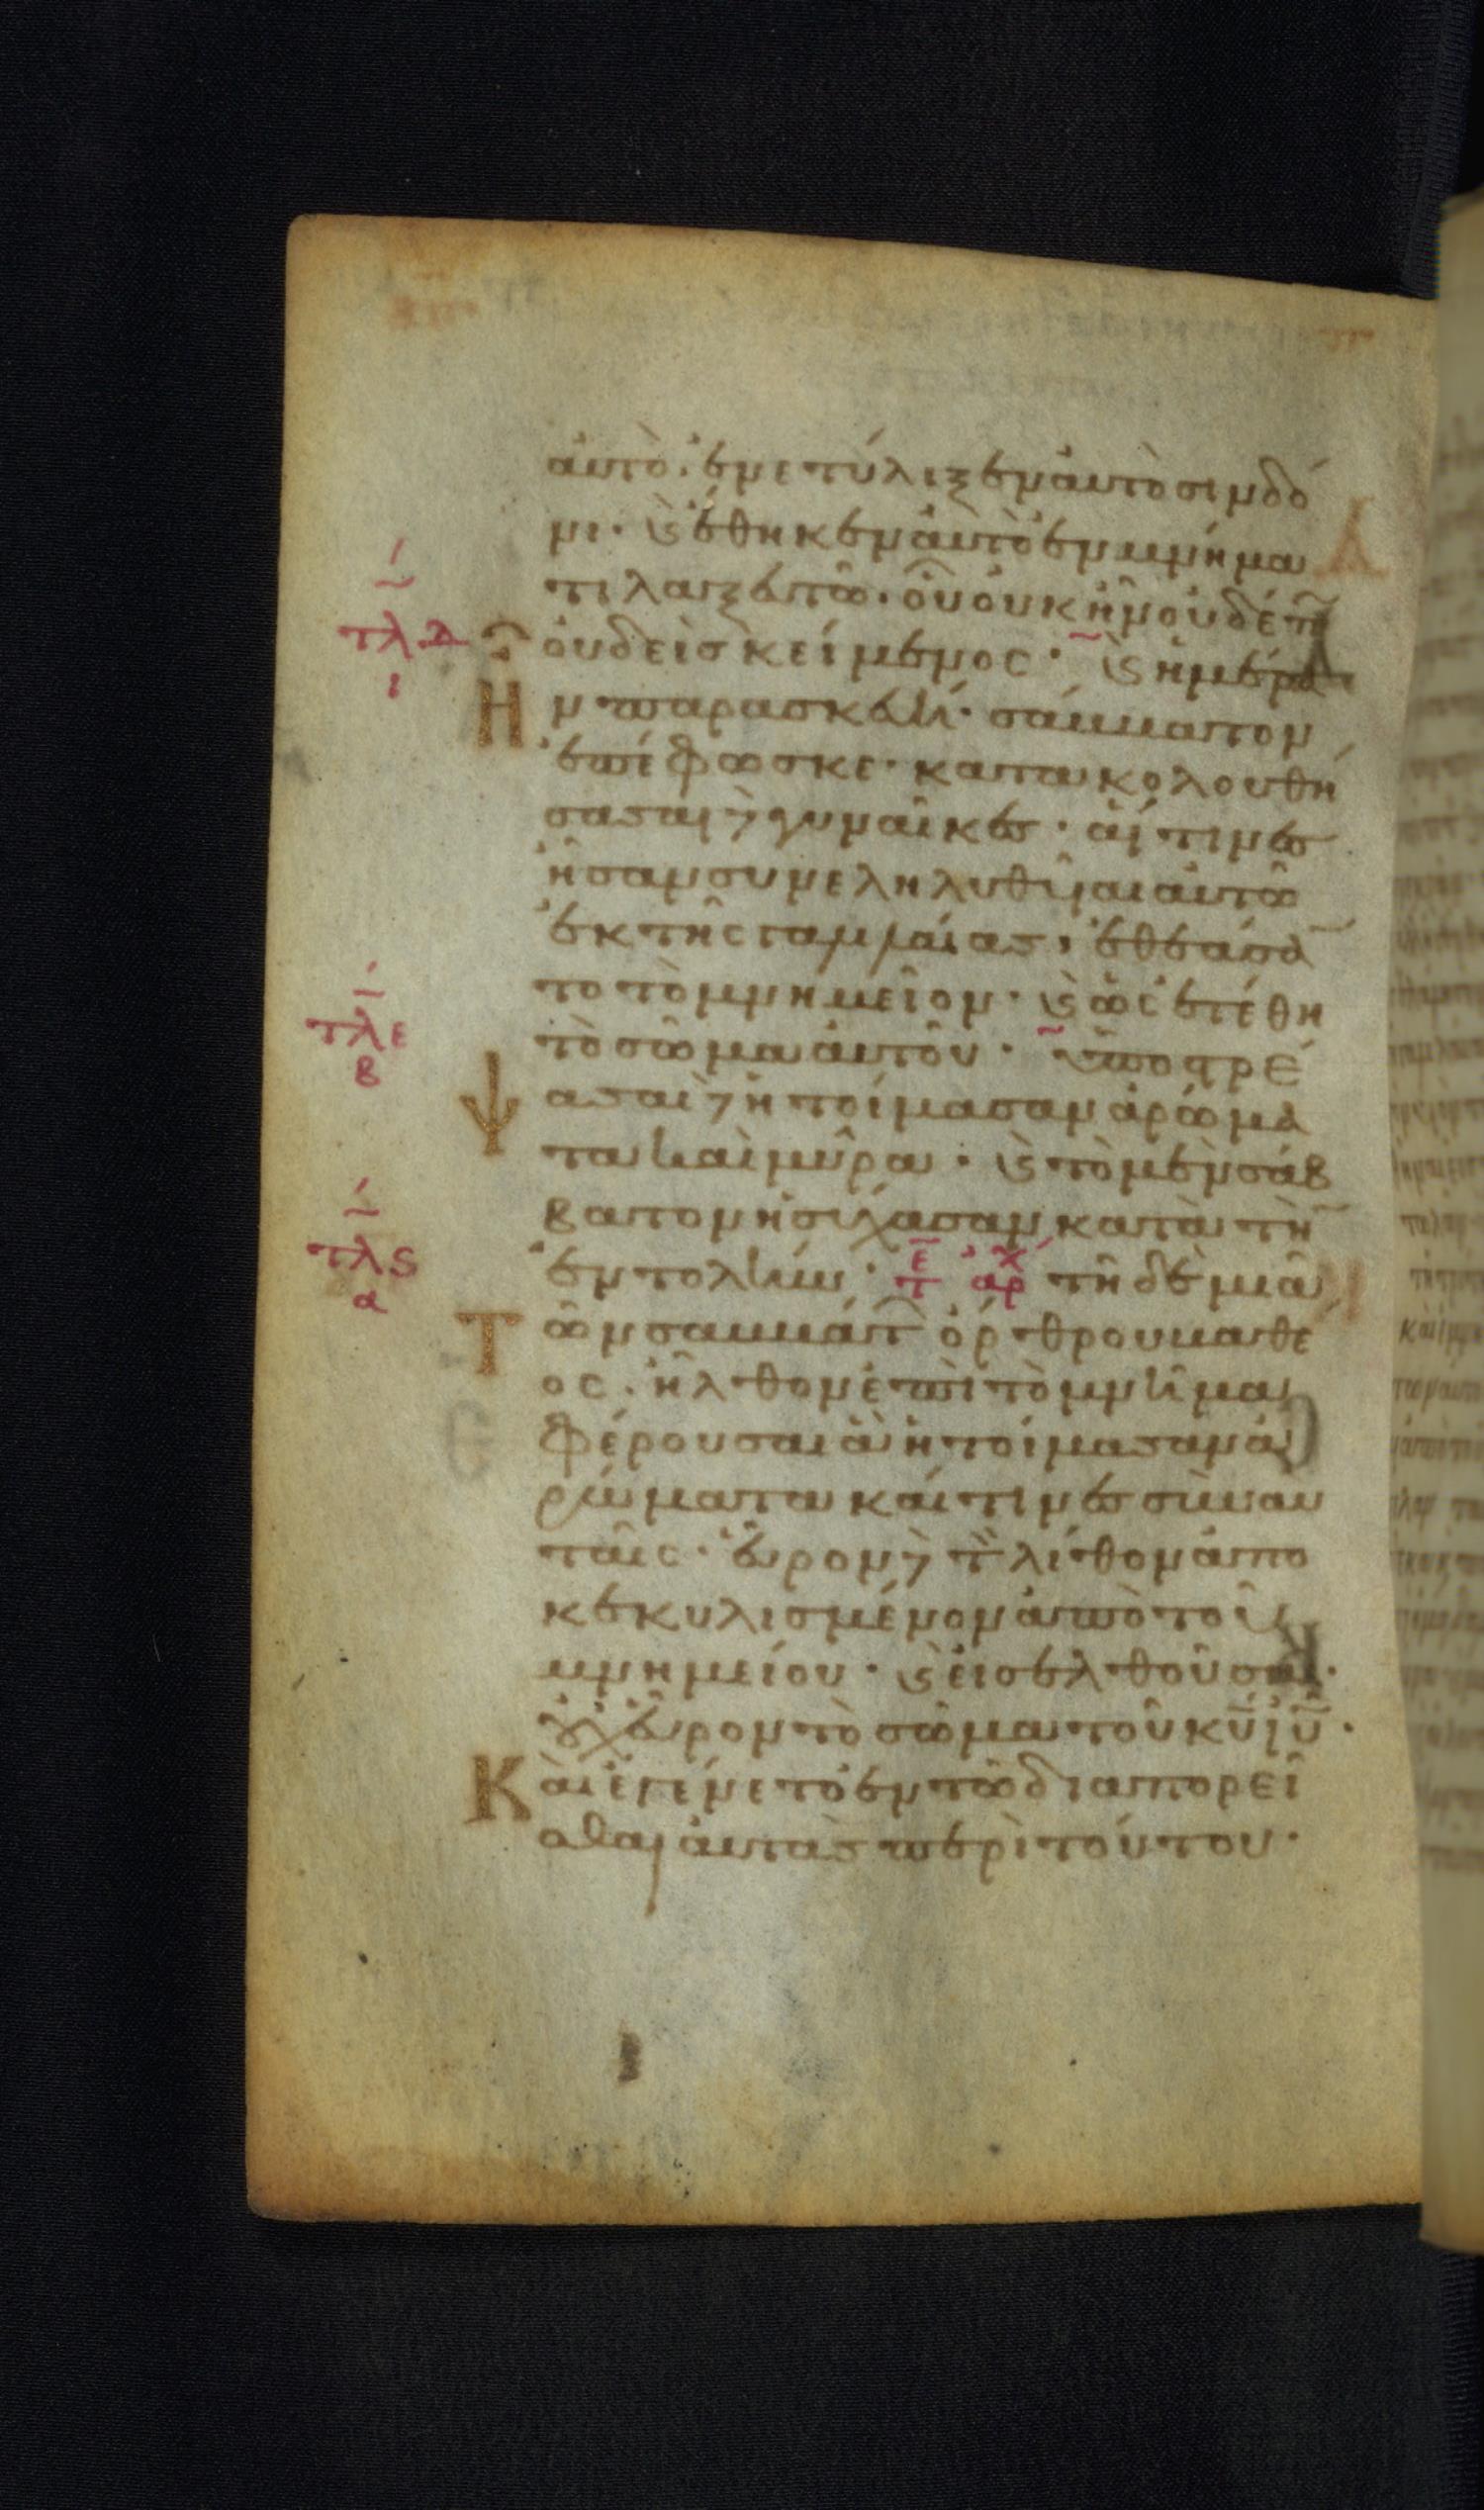 αὐτὸ· ἐνετύλιξεν αὐτὸ σινδό
νι· ϗ ἔθηκεν αὐτὸ ἐν μνήμα
τι λαξευτῶ· οὗ οὐκ ἦν οὐδέπ̃
οὐδεὶς κείμενος· ϗ ἡμέρα
Η ν παρασκευή· σάββατον
ἐπέφωσκε· κατακολουθή
σασαι δὲ γυναῖκες· αἵτινες
ἦσαν συνεληλυθῦιαι αὐτῶ
ἐκ τῆς γαλιλαίας· ἐθεάσα
το τὸ μνημεῖον· ϗ ὡς ἐτέθη
τὸ σῶμα αὐτοῦ· ὑποστρέ
Ψ ασαι δὲ ἡτοίμασαν ἀρώμα
τα καὶ μύρα· ϗ τὸ μὲν σάβ
βατον ἡσύχασαν κατὰ τὴ
ἐντολήν· τε ἀρχ τῆ δὲ μιᾶ
Τ ῶν σαββάτ ὄρθρου βαθέ
ος· ἦλθον ἐπὶ τὸ μνῆμα
φέρουσαι ἃ ἡτοίμασαν ἀ
ρώματα καί τινες σὺν αυ
ταῖς· εὗρον δὲ τ̀ λίθον ἀπο
κεκυλισμένον ἀπὸ τοῦ
μνημείου· ϗ εἰσελθοῦσαι·
οὐχ εὗρον τὸ σῶμα τοῦ κῡ ιῡ·
Κ αὶ ἐγένετο ἐν τῶ διαπορεῖ
σθαι αὐτὰς περὶ τούτου·
τλδ
ι
τλε
β
τλς
α